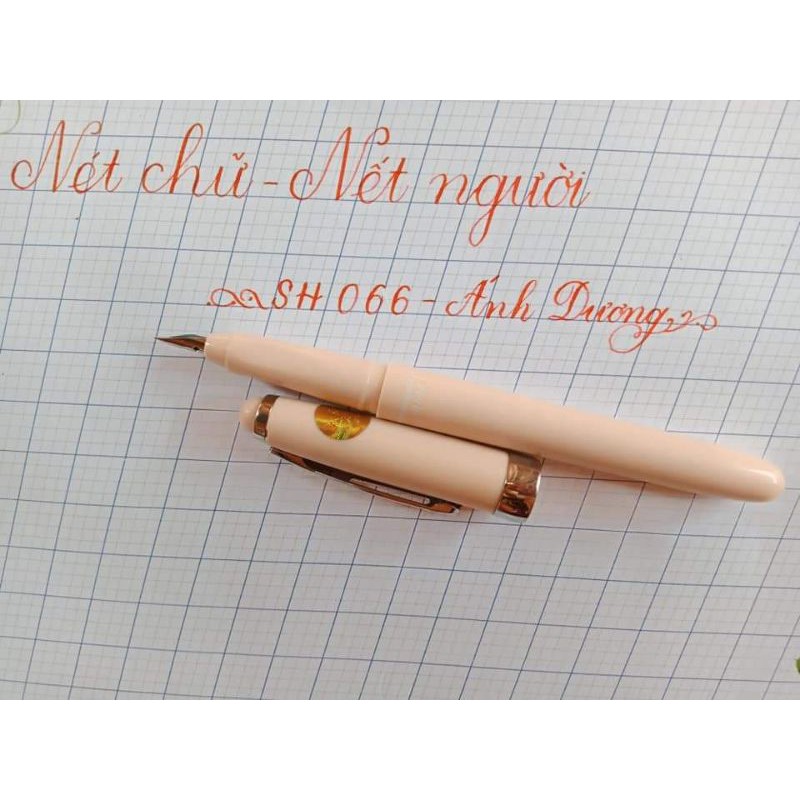 Nét chữ - Nết người
SH 066 - Ánh Dương